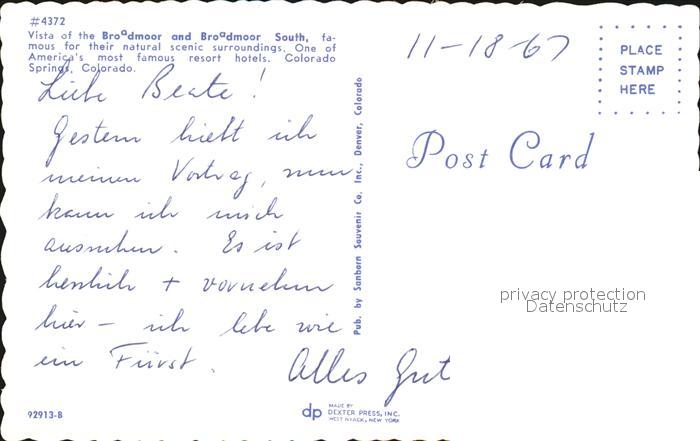 #4372
Vista of the Broadmoor and Broadmoor South, fa-
mous for their natural scenic surroundings. One of
America's most famous resort hotels. Colorado
Springs, Colorado.
11-18-67
PLACE
STAMP
HERE
Post Card
Liebe Beate!
Gestern hielt ich
meinen Vortrag, nun
kann ich mich
ausruhen. Es ist
herrlich + vornehm
hier - ich lebe wie
ein Fürst. Alles Gut
Pub. by Sanborn Souvenir Co. Inc., Denver, Colorado
privacy protection
Datenschutz
92913-B
dp MADE BY
DEXTER PRESS, INC.
WEST NYACK, NEW YORK